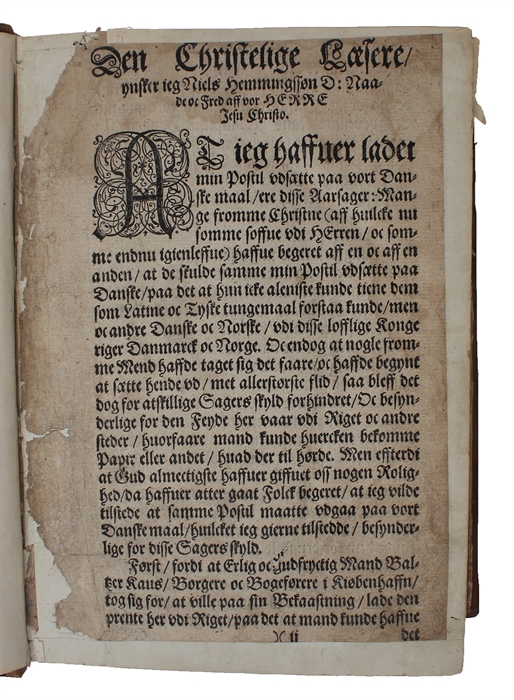 Den Christelige Læsere/
ynsker ieg Niels Hemmingssøn D: Naa-
de oc Fred aff vor HERRE
Jesu Christo.
AT ieg haffuer ladet
min Postil vdsætte paa vort Dan-
ske maal/ere disse Aarsager: Man-
ge fromme Christne (aff huilcke nu
somme soffue vdi HErren/ oc som-
me endnu igienleffue) haffue begeret aff en oc aff en
anden/ at de skulde samme min Postil vdsætte paa
Danske/paa det at hun icke aleniste kunde tiene dem
som Latine oc Tyske tungemaal forstaa kunde/men
oc andre Danske oc Norske/ vdi disse lofflige Konge
riger Danmarck oc Norge. Oc endog at nogle from-
me Mend haffde taget sig det faare/oc haffde begynt
at sætte hende vd/ met allerstørste flid/ saa bleff det
dog for atskillige Sagers skyld forhindret/Oc besyn-
derlige for den Feyde her vaar vdi Riget oc andre
steder/ huorfaare mand kunde huercken bekomme
Papir eller andet/ huad der til hørde. Men effterdi
at Gud almectigste haffuer giffuet oss nogen Rolig-
hed/da haffuer atter gaat Folck begeret/ at ieg vilde
tilstede at samme Postil maatte vdgaa paa vort
Danske maal/huilcket ieg gierne tilstedde/ besynder-
lige for disse Sagers skyld.
Først/ fordi at Erlig oc Gudfryctig Mand Bal-
tzer Kaus/ Borgere oc Bogeførere i Kiøbenhaffn/
tog sig for/ at ville paa sin Bekaastning/ lade den
prente her vdi Riget/paa det at mand kunde haffue
)( ij det